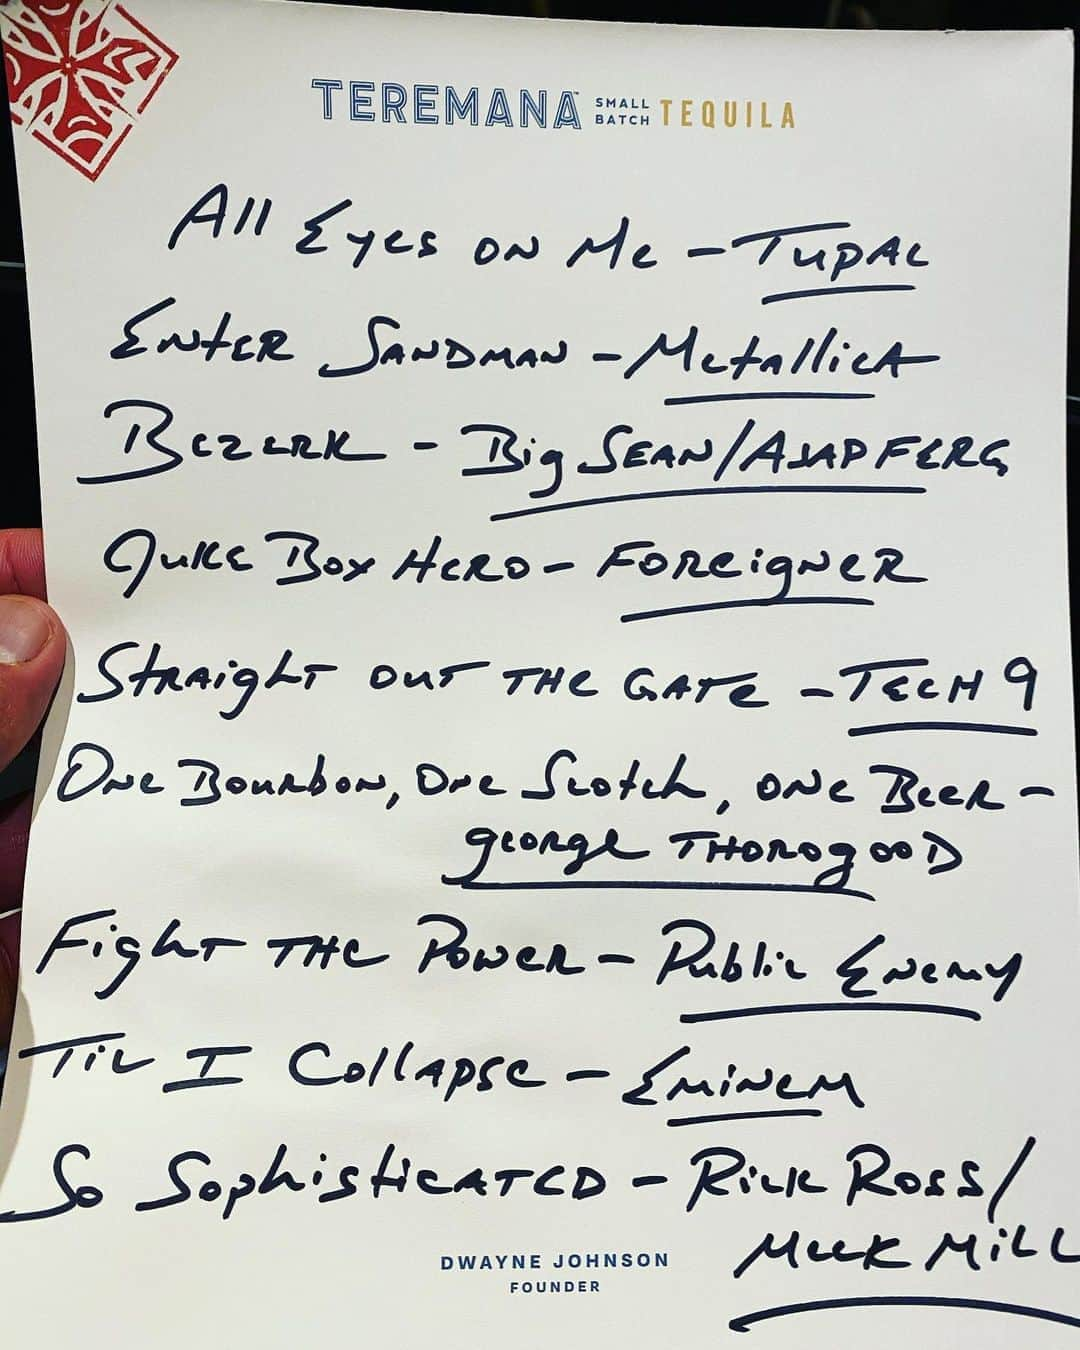 TEREMANA™ SMALL BATCH TEQUILA
All Eyes on Me - Tupac
Enter Sandman - Metallica
Bezerk - Big Sean/ASAP Ferg
Juke Box Hero - Foreigner
Straight out the Gate - Tech 9
One Bourbon, One Scotch, one Beer -
george Thorogood
Fight the Power - Public Enemy
Til I Collapse - Eminem
So Sophisticated - Rick Ross/
Meek Mill
DWAYNE JOHNSON
FOUNDER